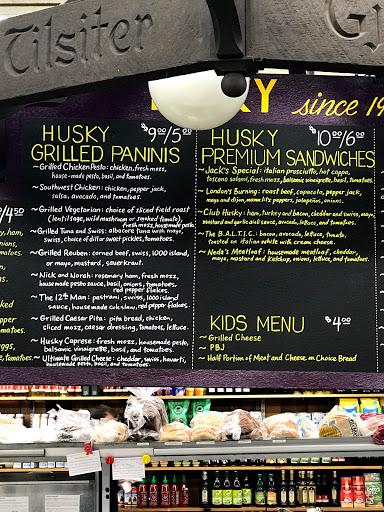 Tilsiter
since 19
HUSKY $9.00/5.00
GRILLED PANINIS
~Grilled Chicken Pesto: chicken, fresh mozz,
house-made pesto, basil, and tomatoes.
~Southwest Chicken: chicken, pepper jack,
salsa, avocado, and tomatoes.
~Grilled Vegetarian: choice of sliced field roast
(lentil sage, wild mushroom or smoked tomato),
fresh mozz, housemade pesto
~Grilled Tuna and Swiss: albacore tuna with mayo,
swiss, choice of dill or sweet pickles, tomatoes.
~Grilled Reuben: corned beef, swiss, 1000 island
or mayo, mustard, sauerkraut.
~Nick and Norah: rosemary ham, fresh mozz,
housemade pesto sauce, basil, onions, tomatoes,
red pepper flakes.
~The 12th Man: pastrami, swiss, 1000 island
sauce, house made coleslaw, red pepper flakes.
~Grilled Caesar Pita: pita bread, chicken,
sliced mozz, caesar dressing, tomatoes, lettuce.
~Husky Caprese: fresh mozz, housemade pesto,
balsamic vinaigrette, basil, and tomatoes.
~Ultimate Grilled Cheese: cheddar, swiss, havarti,
housemade pesto, basil, and tomatoes.
HUSKY $10.00/6.00
PREMIUM SANDWICHES
~Jack's Special: italian prosciutto, hot coppa,
toscano salami, fresh mozz, balsamic vinaigrette, basil, tomatoes.
~London's Burning: roast beef, capocolo, pepper jack,
mayo and dijon, mama lil's peppers, jalapeños, onions.
~Club Husky: ham, turkey and bacon, cheddar and swiss, mayo
mustard and garlic dill sauce, avocado, lettuce, and tomatoes.
~The B.A.L.T.I.C.: bacon, avocado, lettuce, tomato,
toasted on italian white with cream cheese.
~Nede's Meatloaf: housemade meatloaf, cheddar,
mayo, mustard and ketchup, onions, lettuce, and tomatoes.
KIDS MENU $4.00
~Grilled Cheese
~PBJ
~Half Portion of Meat and Cheese on Choice Bread
/4.50